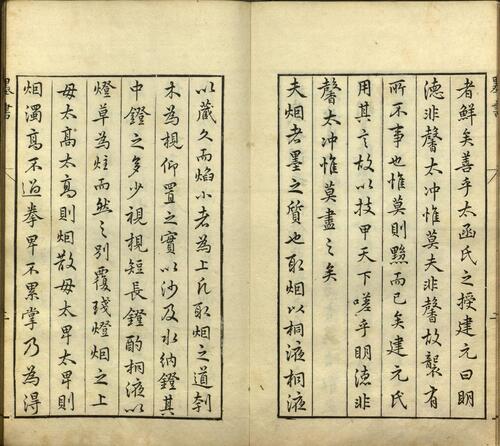 者鮮矣善乎太函氏之授建元曰明
德非馨太冲惟莫夫非馨故襲有
所不事也惟莫則黝而已矣建元氏
用其言故以技甲天下嗟乎明德非
馨太冲惟莫盡之矣
夫烟者墨之質也取烟以桐液桐液
以藏久而焰小者為上凡取烟之道刳
木為梘仰置之實以沙及水納鐙其
中鐙之多少視梘短長鐙酌桐液以
燈草為炷而然之別覆瓷燈烟之上
毋太高太高則烟散毋太卑太卑則
烟濁高不過拳卑不累掌乃為得
墨書
墨書
二